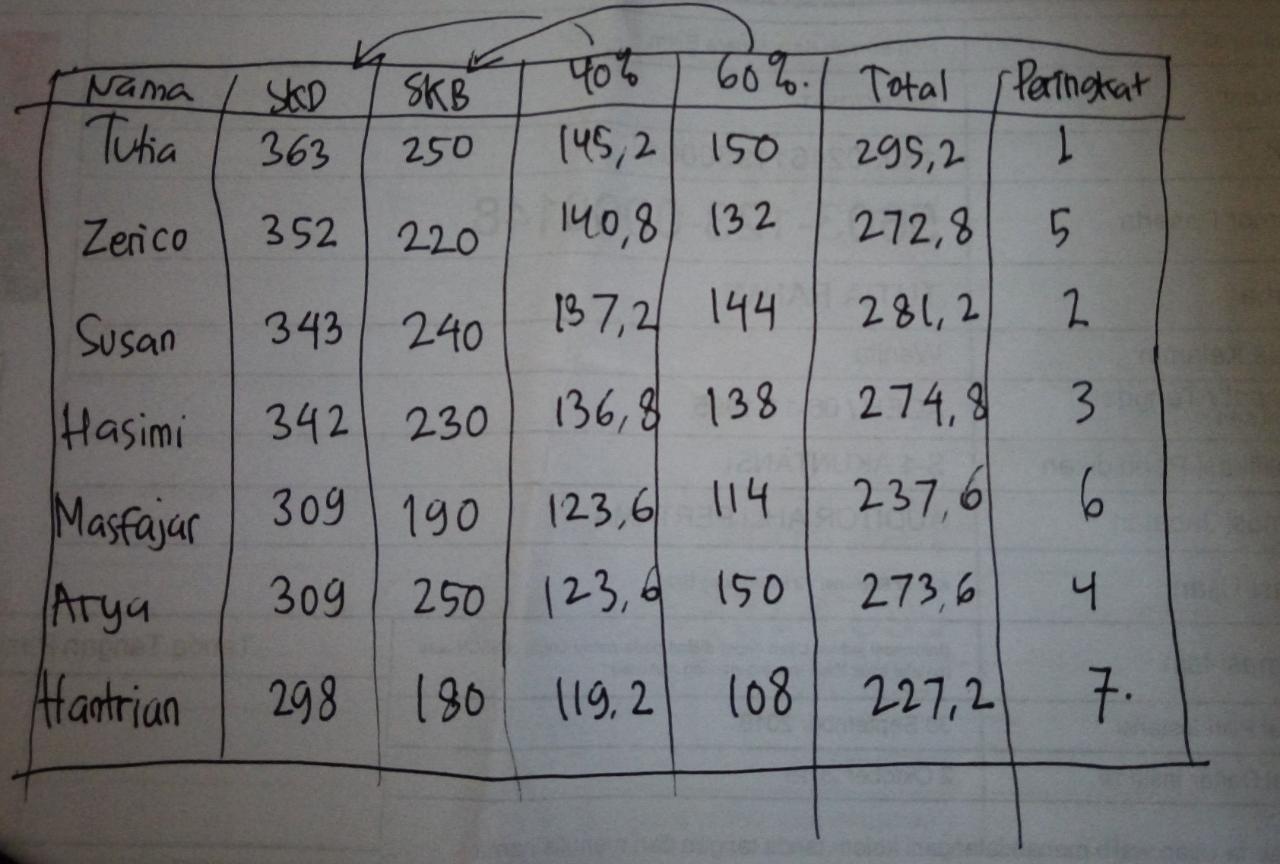 Nama SKD SKB 40% 60%. Total Peringkat
Tutia 363 250 145,2 150 295,2 1
Zerico 352 220 140,8 132 272,8 5
Susan 343 240 137,2 144 281,2 2
Hasimi 342 230 136,8 138 274,8 3
Masfajar 309 190 123,6 114 237,6 6
Arya 309 250 123,6 150 273,6 4
Hantrian 298 180 119,2 108 227,2 7.